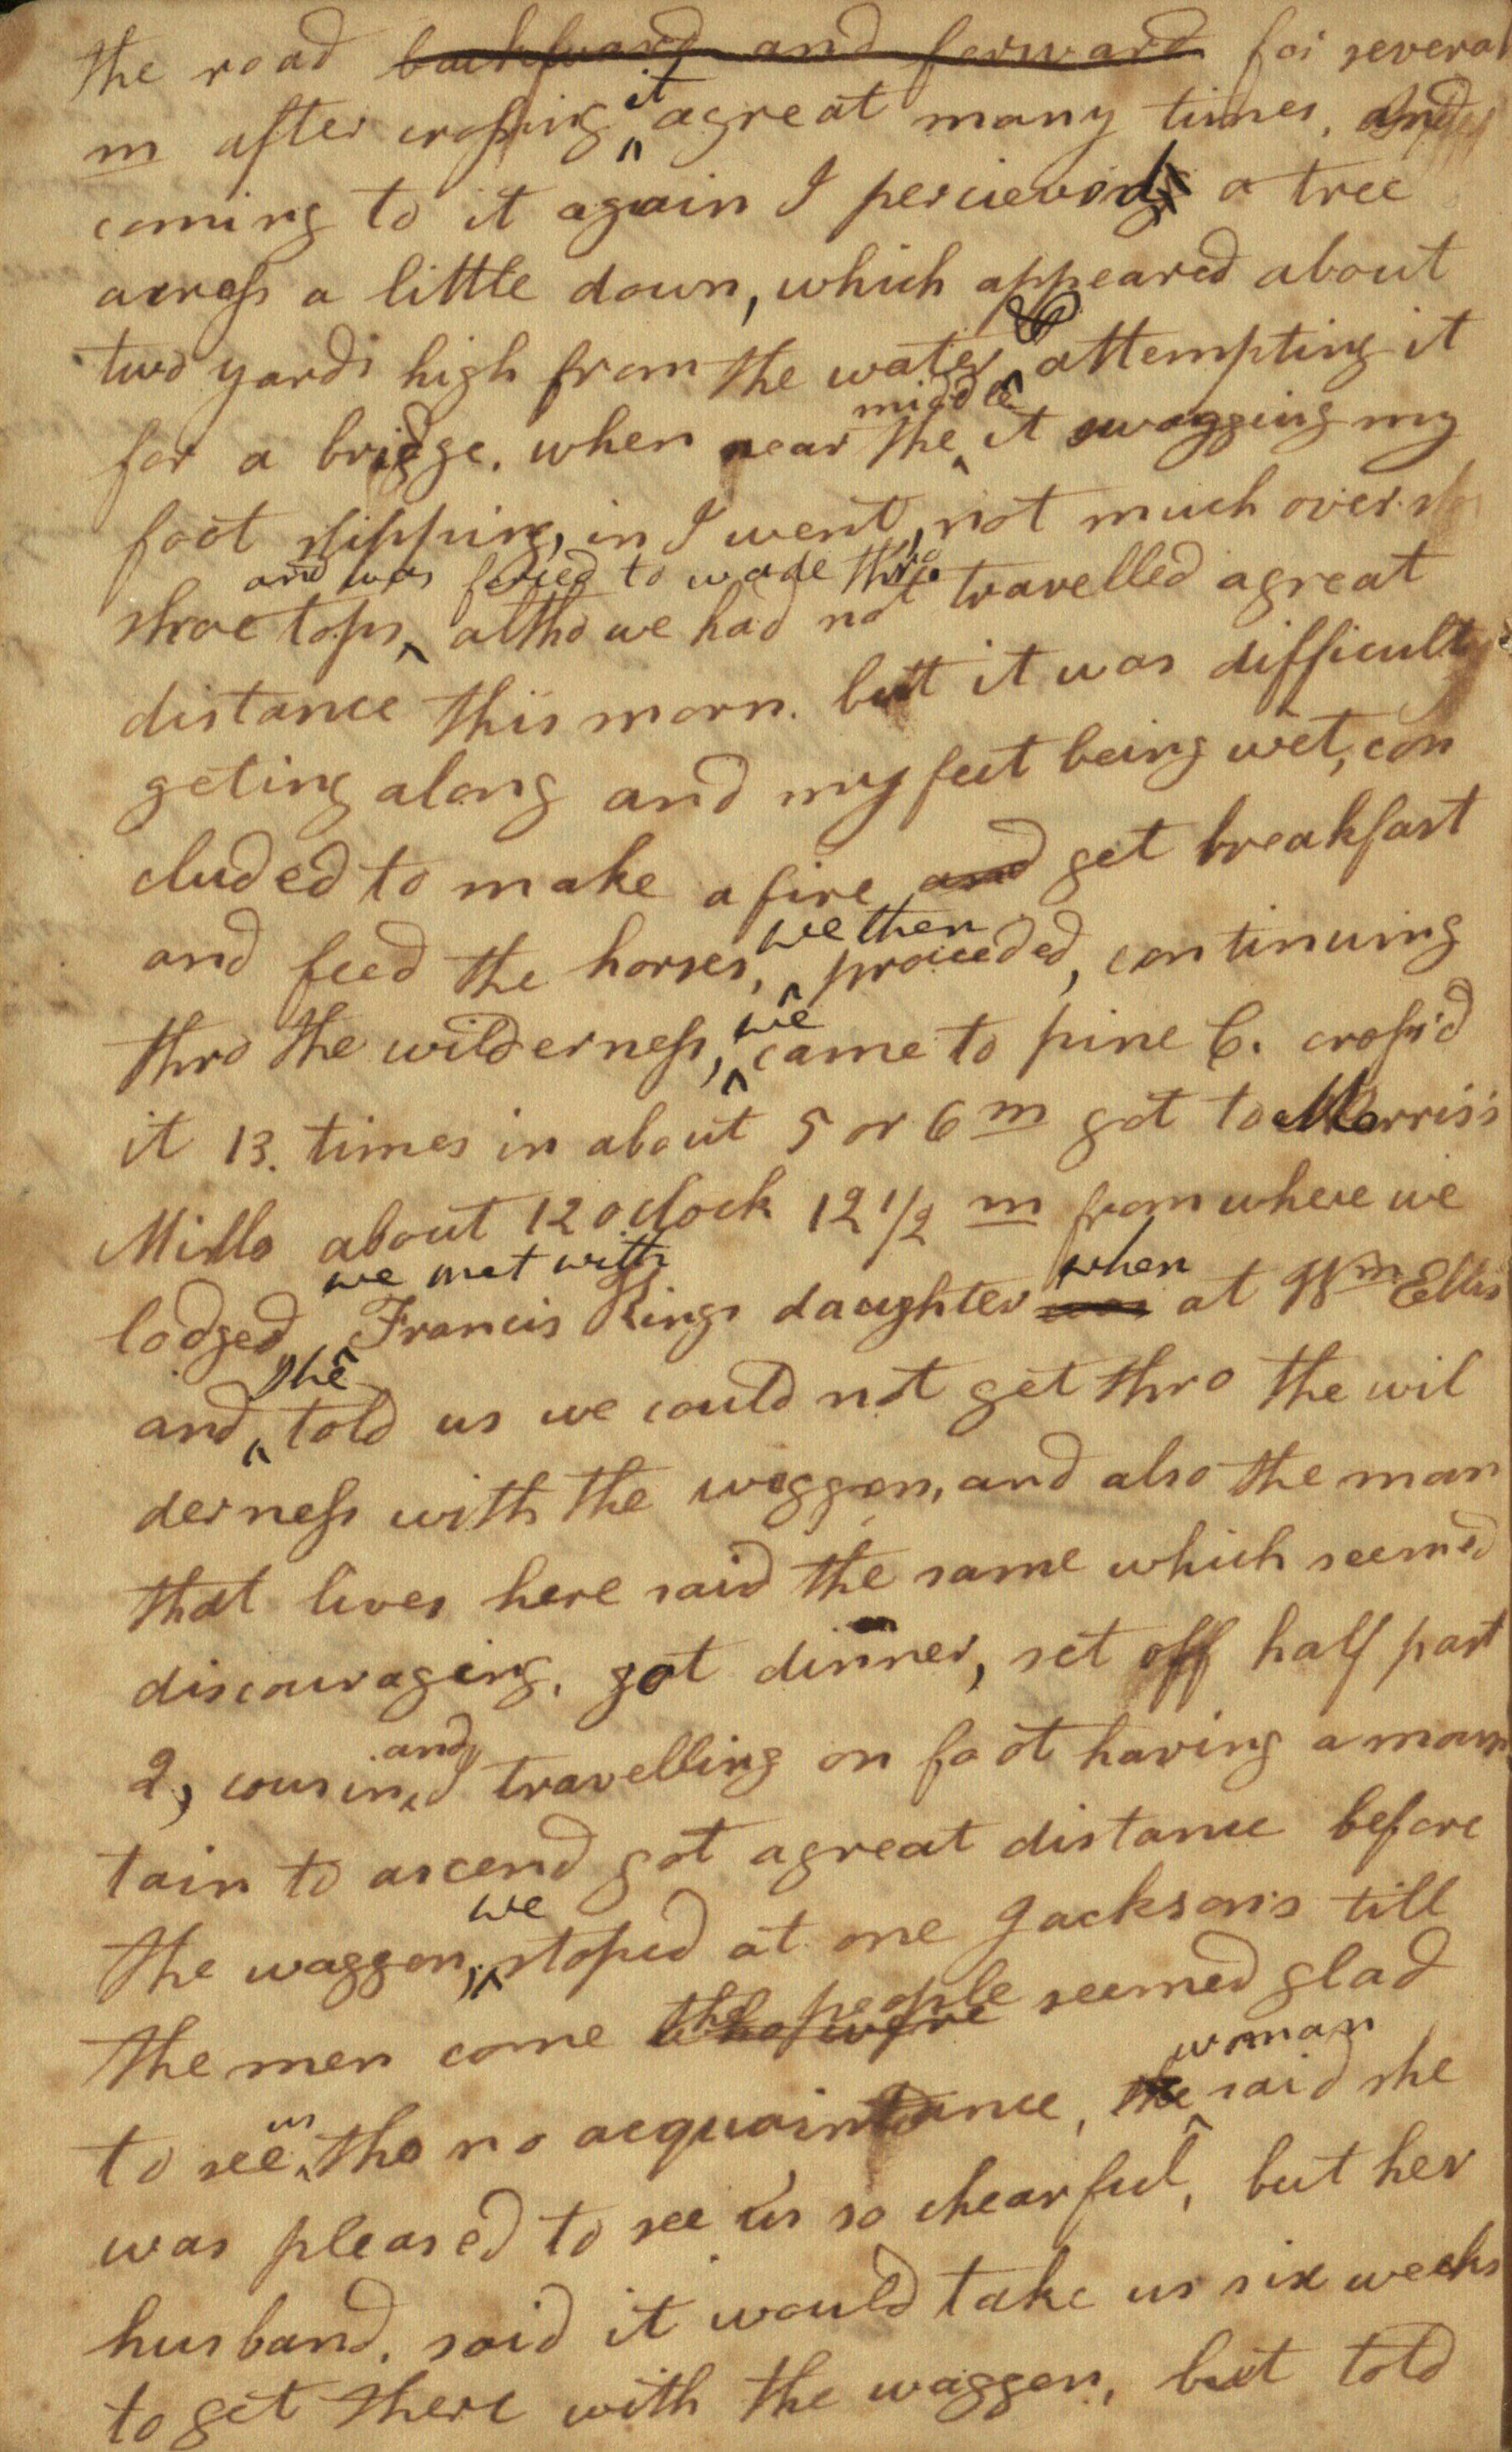 the road backward and forward for several
m after crossing it agreat many times, and
coming to it again I percieved a tree
across a little down, which appeared about
two yards high from the water & attempting it
for a bridge. when near the middle it swagging my
foot slipping, in I went, not much over
shoe tops, and was forced to wade thro. altho we had not travelled agreat
distance this morn. but it was difficult
geting along and my feet being wet, con
cluded to make a fire and get breakfast
and feed the horses, we then proceeded, continuing
thro the wilderness, we came to pine C. cross'd
it 13. times in about 5 or 6 m got to Morris's
Mills about 12 oclock 12 1/2 m from where we
lodged, we met with Francis Kings daughter was when at Wm Ellis
and she told us we could not get thro the wil
derness with the waggon, and also the man
that lives here said the same which seem'd
discouraging. got dinner, set off half past
2, cousin and I travelling on foot having a moun
tain to ascend got agreat distance before
the waggon, we stoped at one Jacksons till
the men come who were the people seemed glad
to see us tho no acquaintance, the woman said she
was pleased to see us so chearful, but her
husband. said it would take us six weeks
to get there with the waggon, but told